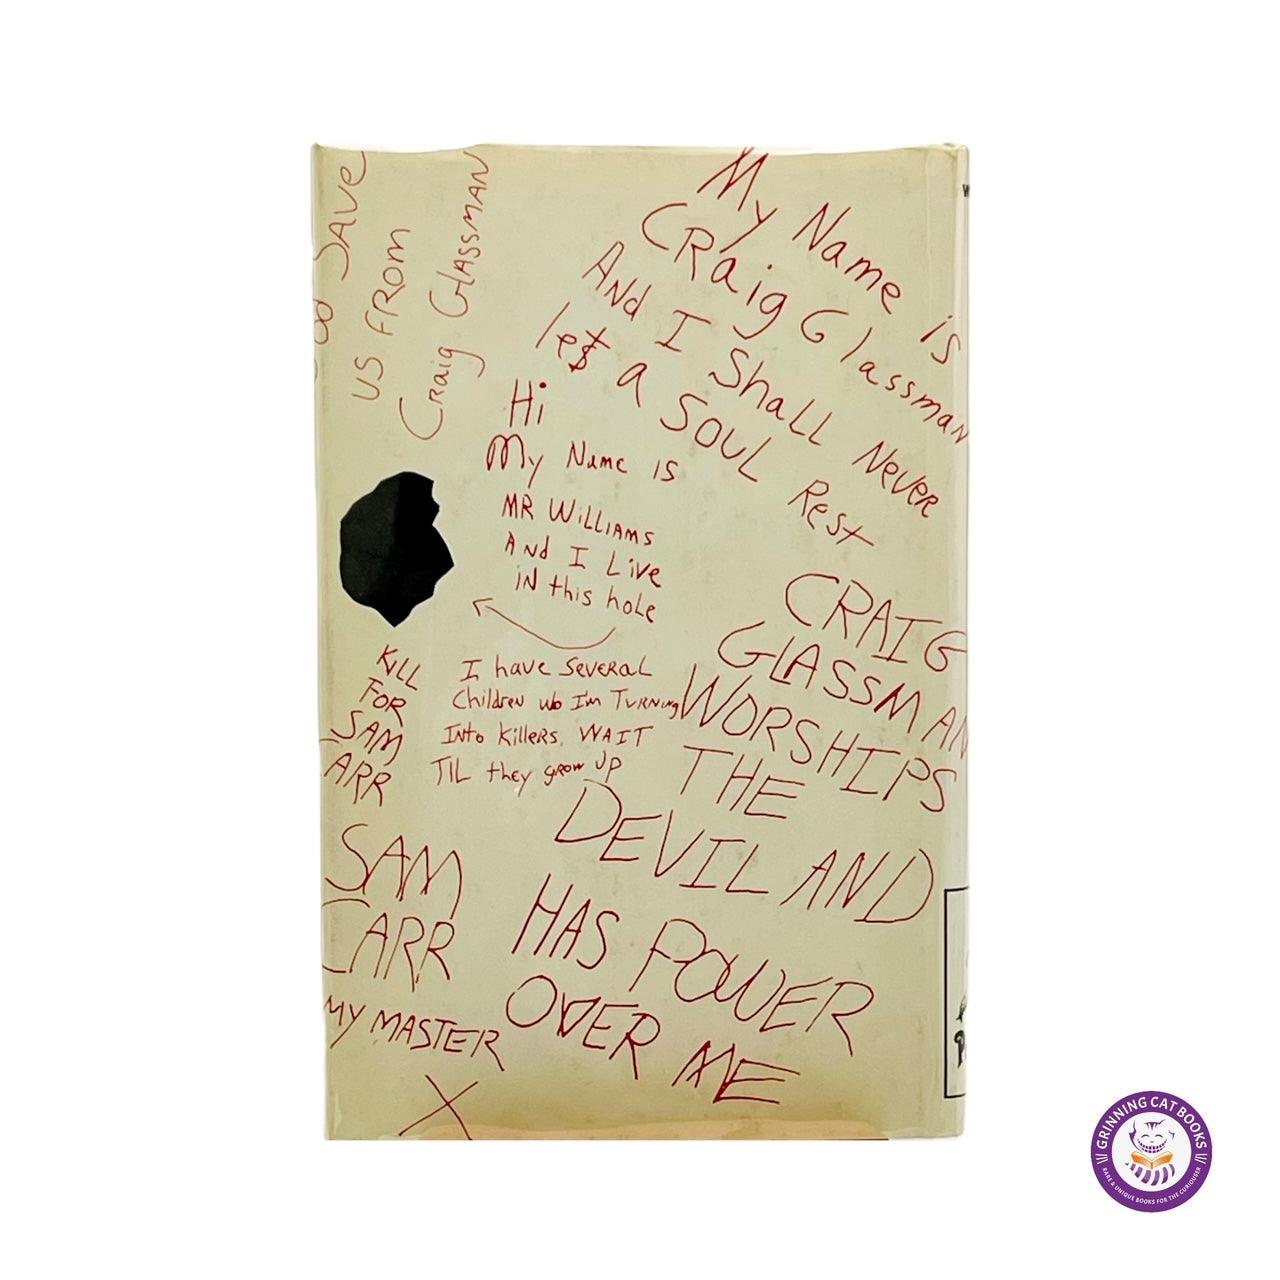 SAVE
US FROM
Craig GLASSMAN
My Name is
CRaig Glassman
And I Shall Never
le$ a Soul Rest
Hi
My Name is
MR WiLLiAMS
And I Live
iN this hole
I have SeveRaL
Children wo I'm TuRNing
Into KilleRs. WAIT
TIL they grow Up
KiLL
FOR
SAM
CARR
SAM
CARR
MY MASTER
X
CRAIG
GLASSMAN
WORSHIPS
THE
DEVIL AND
HAS POWER
OVER ME
GRINNING CAT BOOKS
RARE & UNIQUE BOOKS FOR THE CURIOUSER